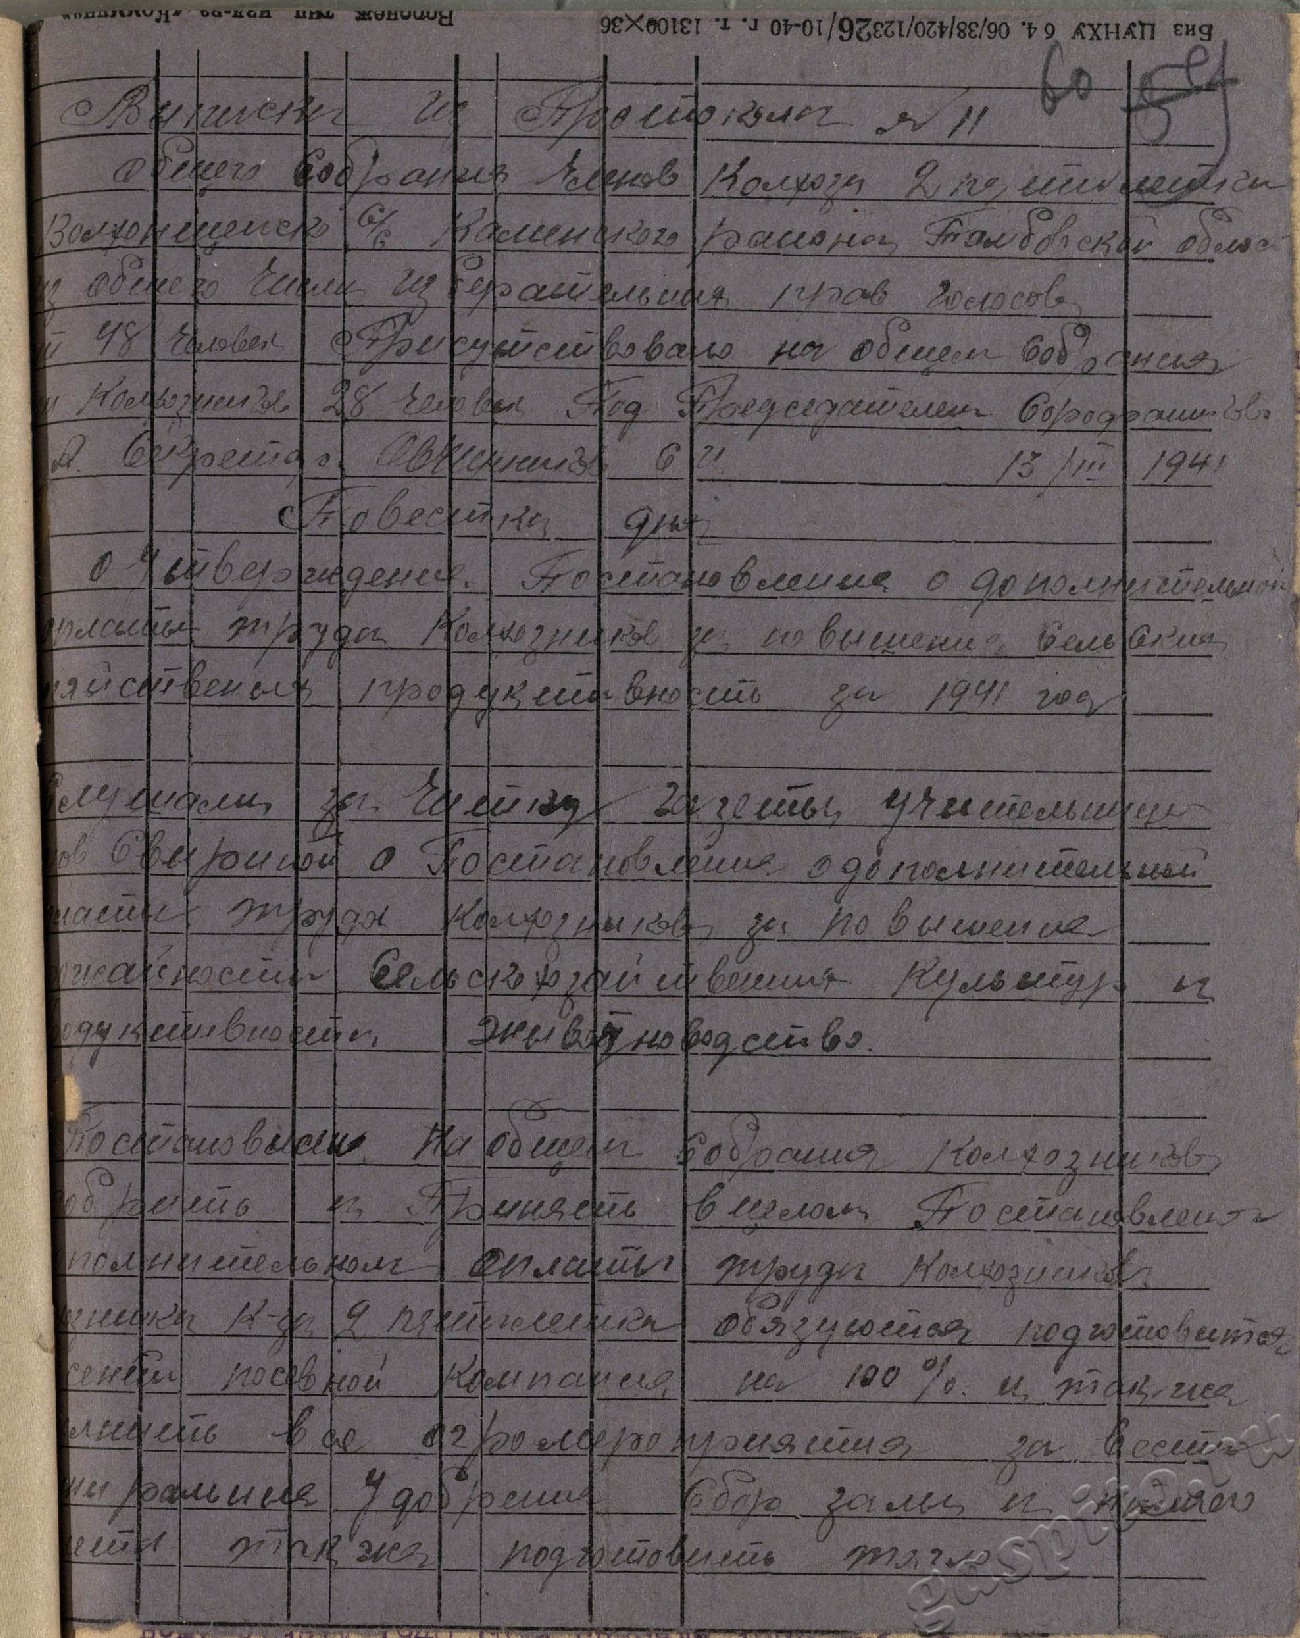 Биз ЦУНХУ 6 4. 06/38/420/12326/10-40 г. т. 13100×36 Воронеж тип изд-ва «Коммуна»
60
Выписки из Протокола №11
общего Собрания Членов Колхоза 2 пятилетки
Волхонщенско С/с Каменского района Тамбовской област
из общего Числа избератальния прав Голосов
й 48 человек Присутствовало на общем Собрания
и Колхозников 28 человек Под Председателем
А. Секретар Овчинников С И. 13/III 1941
Повестка дня
о Утверждения. Постановления о дополнительной
оплаты труда Колхозников за повышения Сельския
зяйственыя продуктивность за 1941 год
Слушали за Читку газеты учительницы
Свириной о Постановления о дополнительной
платы труда Колхозников за повышения
ожайности Сельскохозайствения Культур и
родуктивности Животноводство.
Постановили На общем Собрания Колхозников
добрить и Принять в целом Постановления
полнительном оплаты труда Колхозников
зники К-за 2 пятилетка обязуются подготовится
сеней посевной Компания на 100%. и также
лнить все агромероприятия за вести
ниральния Удобрения Сбор залы и
также подготовить тягло
gaspito.ru